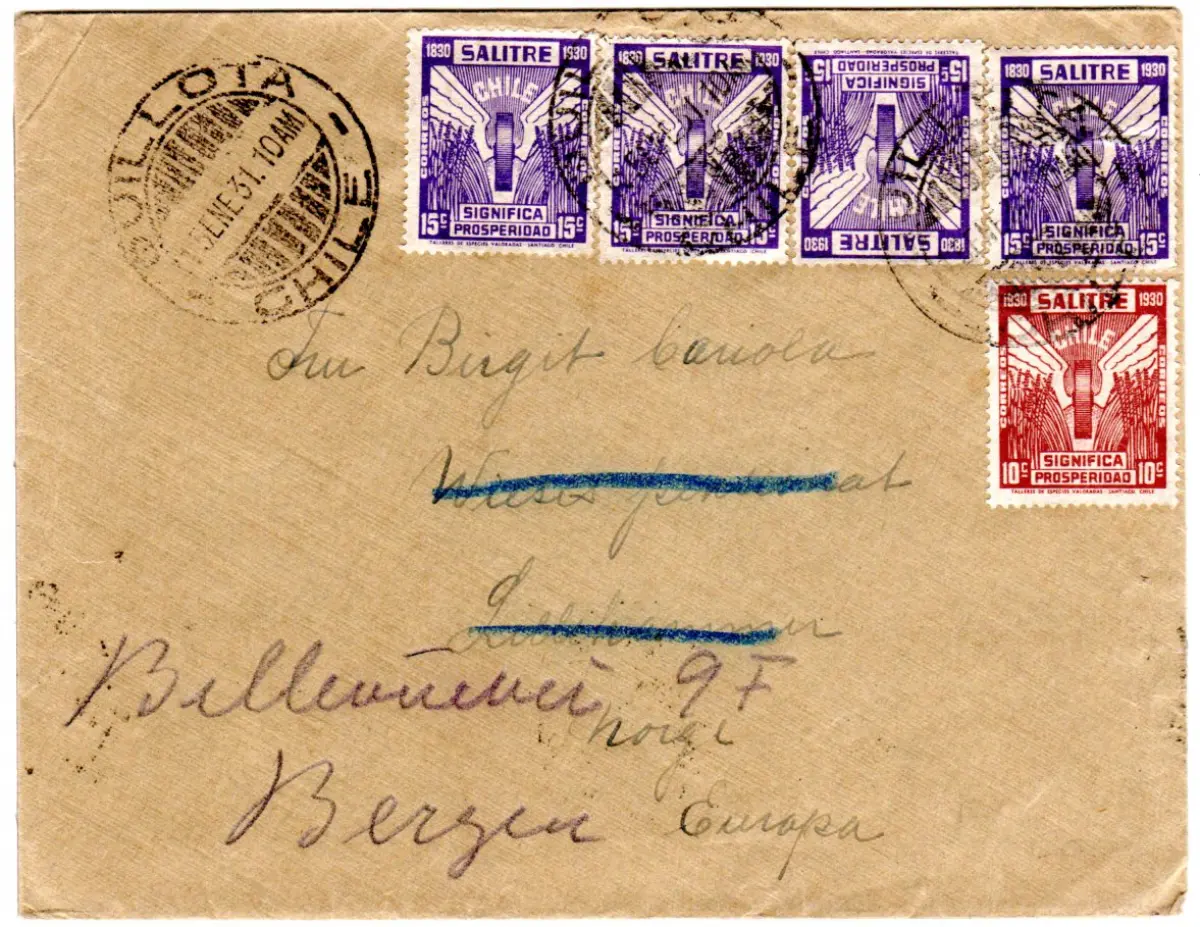 QUILLOTA
ENE 31. 10AM
CHILE
1830 SALITRE 1930
CHILE
CORREOS
15c SIGNIFICA 15c
PROSPERIDAD
TALLERES DE ESPECIES VALORADAS - SANTIAGO, CHILE
1830 SALITRE 1930
CHILE
CORREOS
15c SIGNIFICA 15c
PROSPERIDAD
1830 SALITRE 1930
CHILE
SIGNIFICA 15c
PROSPERIDAD 15
TALLERES DE ESPECIES VALORADAS - SANTIAGO, CHILE
1830 SALITRE 1930
CHILE
CORREOS
15c SIGNIFICA 15c
PROSPERIDAD
TALLERES DE ESPECIES VALORADAS - SANTIAGO, CHILE
1830 SALITRE 1930
CHILE
CORREOS CORREOS
10c SIGNIFICA 10c
PROSPERIDAD
TALLERES DE ESPECIES VALORADAS - SANTIAGO, CHILE
Birgit Cariola
Lillehammer
9 F
Norge
Bergen
Europa